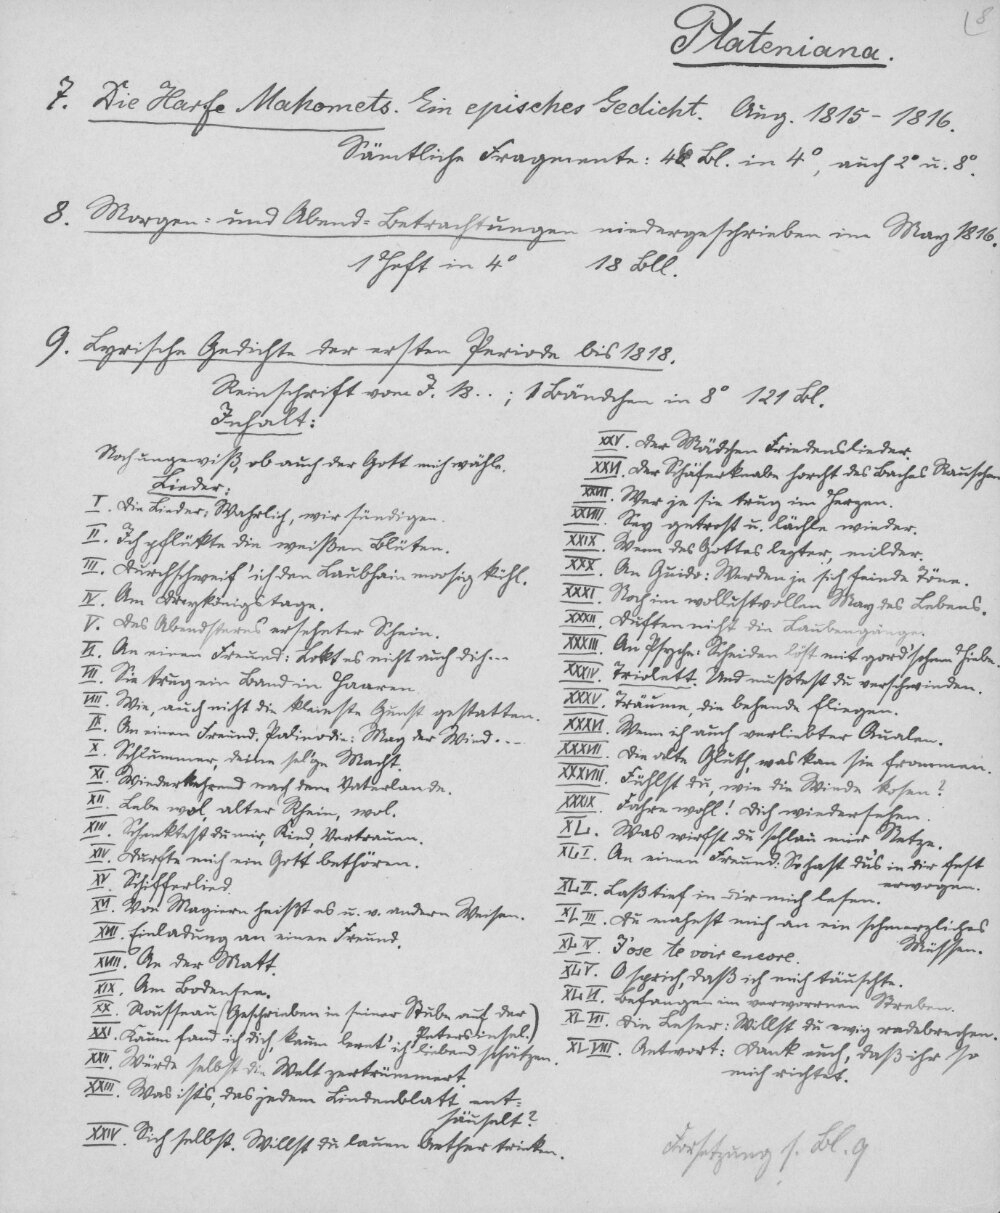 8
Plateniana.
7. Die Harfe Mahomets. Ein episches Gedicht. Aug. 1815 - 1816.
Sämtliche Fragmente: 48 Bl. in 4°, auch 2° u. 8°.
8. Morgen= und Abend=Betrachtungen niedergeschrieben im May 1816.
1 Heft in 4° 18 Bll.
9. Lyrische Gedichte der ersten Periode bis 1818.
Reinschrift vom J. 18..; 1 Bändchen in 8° 121 Bl.
Inhalt:
Noch ungewiß, ob auch der Gott mich wähle.
Lieder:
I. Die Lieder: Wahrlich, wir sündigen.
II. Ich pflükte die weißen Blüten.
III. Durchschweif' ich den Laubhain moosig kühl.
IV. Am Dreykönigstage.
V. Des Abendsterns ersehnter Schein.
VI. An einen Freund: Lokt es nicht auch dich...
VII. Sie trug ein Band in Haaren.
VIII. Wie, auch nicht die kleinste Gunst gestatten.
IX. An einen Freund. Palinodie: Mag der Wind...
X. Schlummer, deine sel'ge Macht.
XI. Wiederkehrend nach dem Vaterlande.
XII. Lebe wol, alter Rhein, wol.
XIII. Schenktest du mir, Kind, Vertrauen.
XIV. Durfte mich ein Gott bethören.
XV. Schifferlied.
XVI. Von Magiern heißt es u. v. andern Weisen.
XVII. Einladung an einen Freund.
XVIII. An der Matt.
XIX. Am Bodensee.
XX. Rousseau (Geschrieben in seiner Stube auf der
Petersinsel.)
XXI. Kaum fand ich dich, kaum lernt' ich liebend schätzen.
XXII. Würde selbst die Welt zertrümmert.
XXIII. Was ists, das jedem Lindenblatt ent=
säuselt?
XXIV. Sich selbst. Willst du lauen Aether trinken.
XXV. Der Mädchen Friedenslieder.
XXVI. Der Schäferknabe horcht des Baches Rauschen
XXVII. Wer je sie trug im Herzen.
XXVIII. Sey getrost u. lächle wieder.
XXIX. Wenn des Gottes lezter, milder.
XXX. An Guido: Werden je sich feinde Töne.
XXXI. Noch im wollustvollen May des Lebens.
XXXII. Duften nicht die Laubengänge.
XXXIII. An Psyche: Scheiden löst mit gord'schem Hiebe.
XXXIV. Triolett. Und mußtest du verschwinden.
XXXV. Träume, die behende fliegen.
XXXVI. Wenn ich auch verliebter Qualen.
XXXVII. Die alte Gluth, was kan sie frommen.
XXXVIII. Fühlst du, wie die Winde kosen?
XXXIX. Fahre wohl! Dich wiedersehen.
XL. Was wirfst du schlau mir Netze.
XLI. An einen Freund: So hast du's in dir fest
erwogen.
XLII. Laß tief in dir mich lesen.
XLIII. Du mahnst mich an ein schmerzliches
Müssen.
XLIV. J'ose te voir encore.
XLV. O sprich, daß ich mich täuschte.
XLVI. Befangen im verworrnen Streben.
XLVII. Die Leser: Willst du ewig radebrechen.
XLVIII. Antwort: Dank euch, daß ihr so
mich richtet.
Forsetzung s. Bl. 9